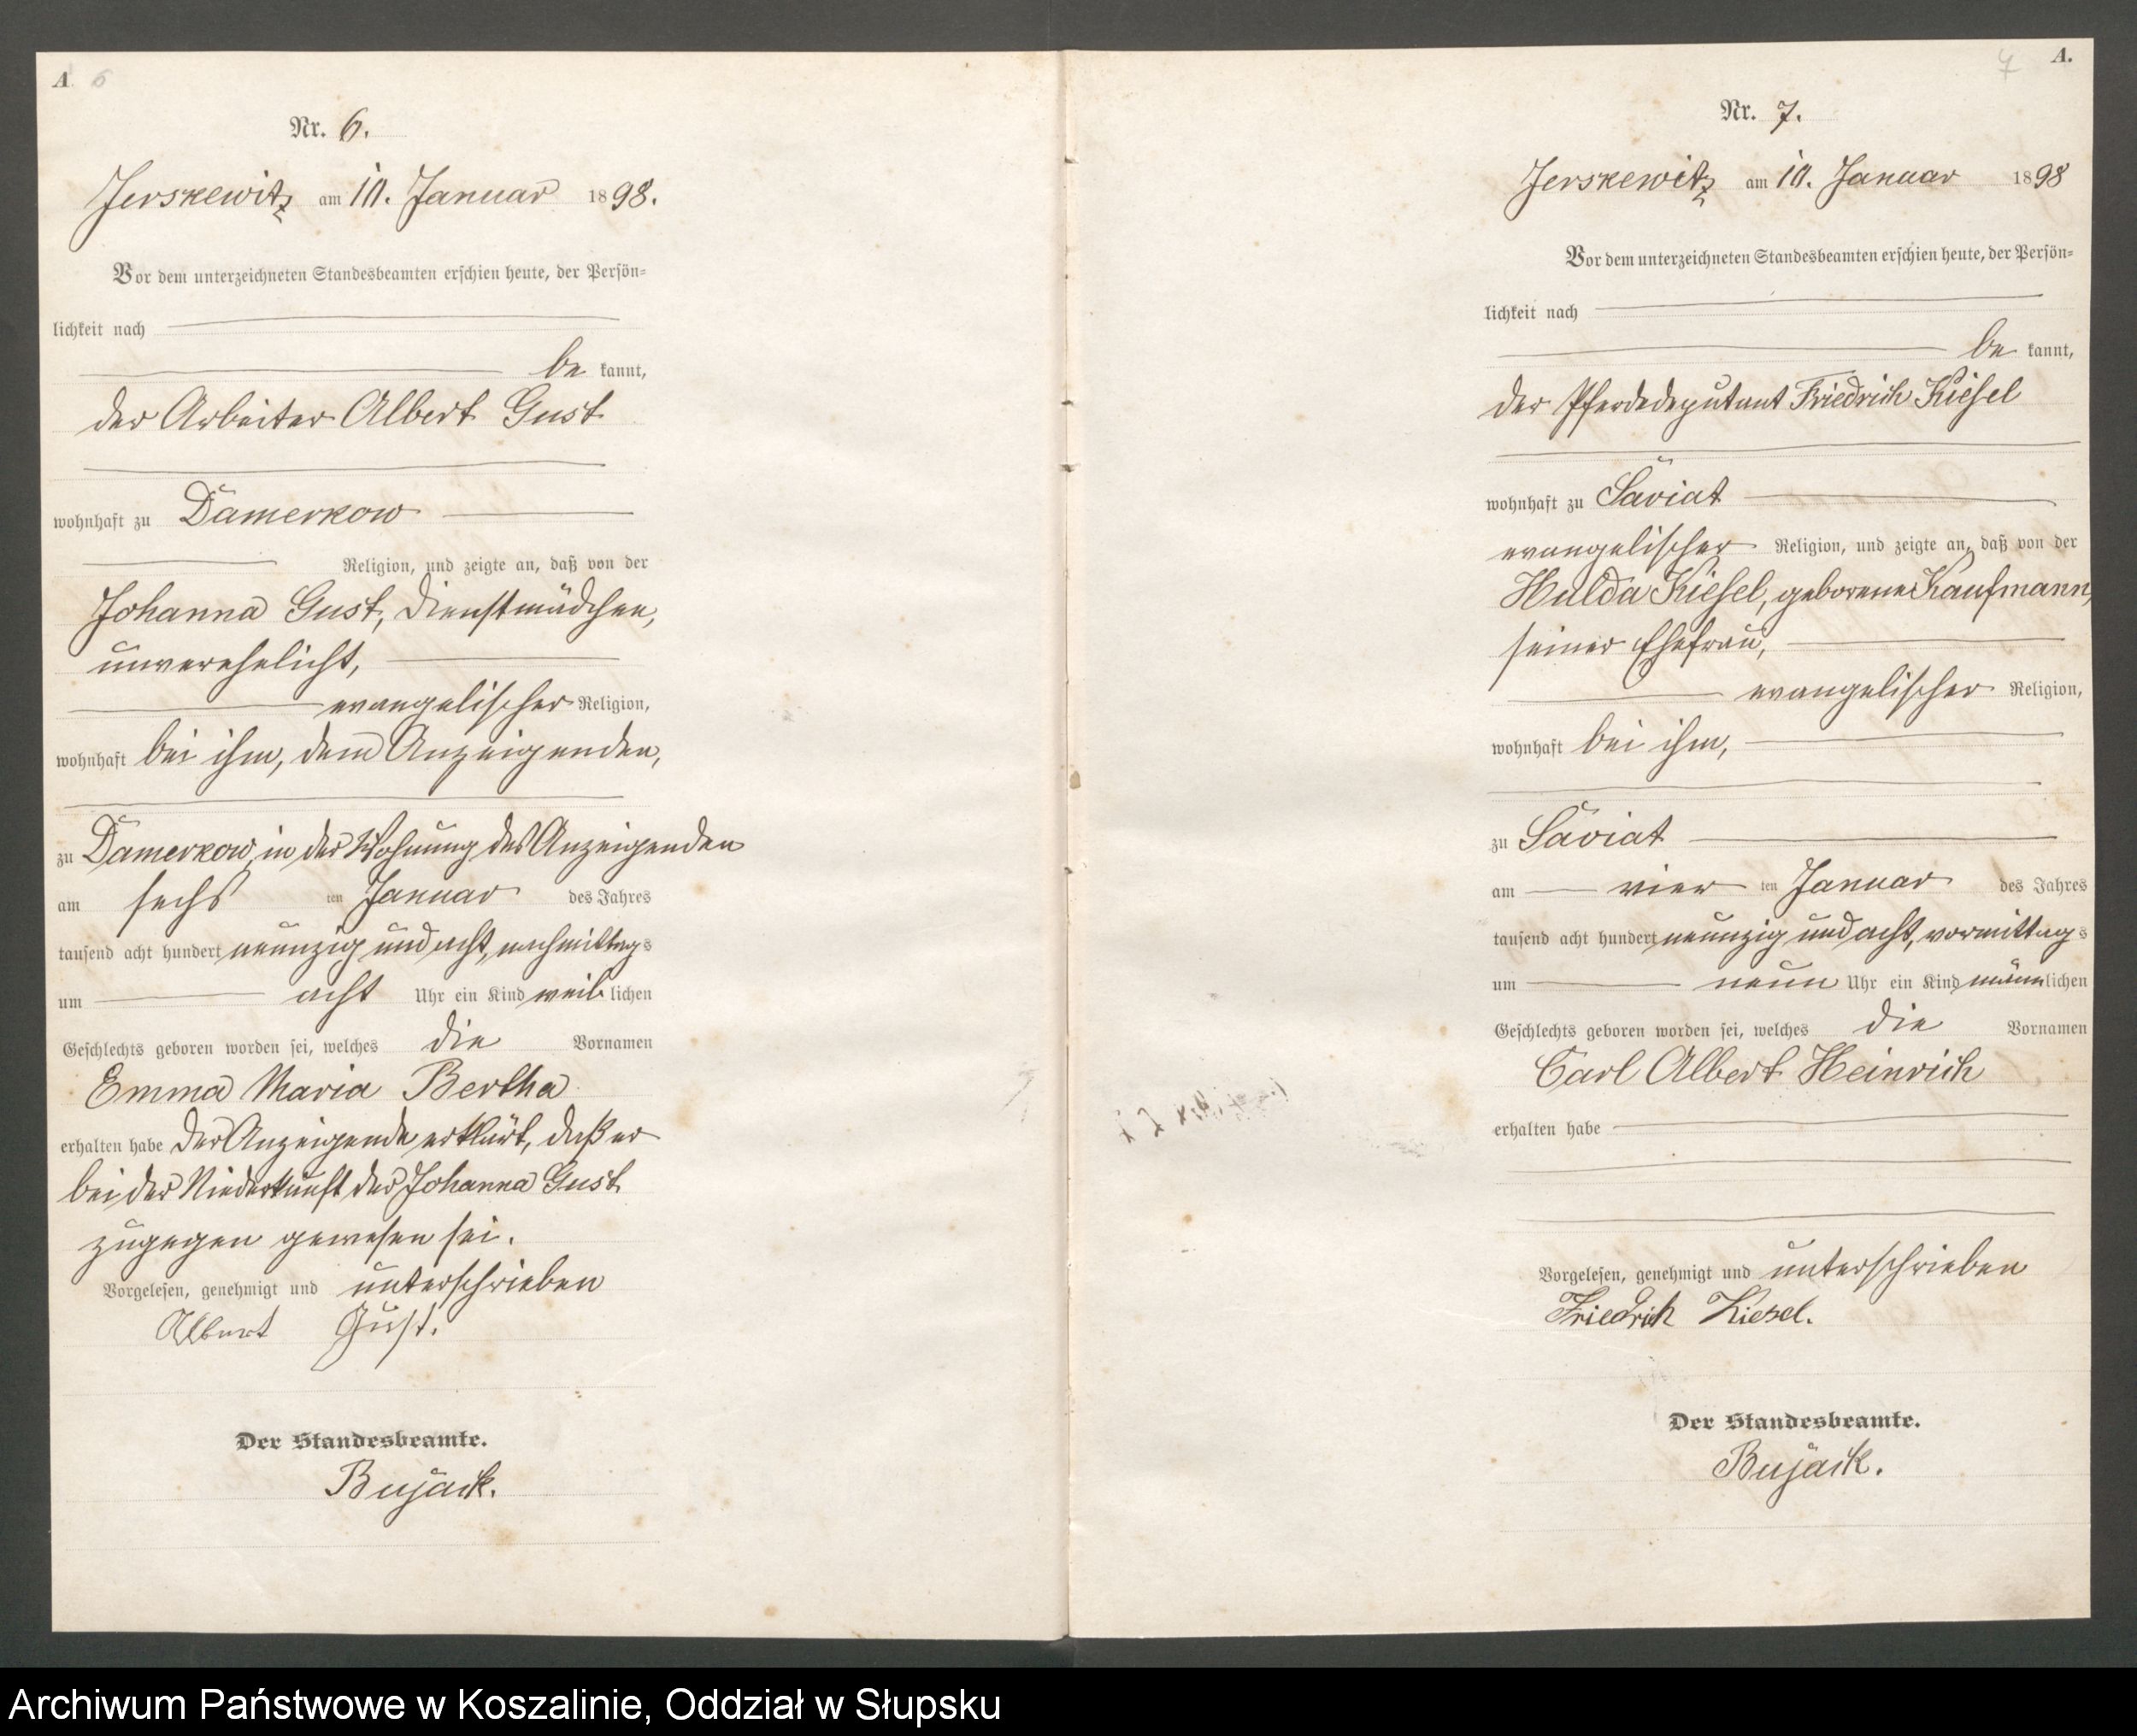 A 6
Nr. 6.
Jerskewitz am 10. Januar 1898.
Vor dem unterzeichneten Standesbeamten erschien heute, der Persön-
lichkeit nach
be kannt,
der Arbeiter Albert Gust
wohnhaft zu Damerkow
Religion, und zeigte an, daß von der
Johanna Gust, Dienstmädchen,
unverehelicht,
evangelischer Religion,
wohnhaft bei ihm, dem Anzeigenden,
zu Damerkow, in der Wohnung des Anzeigenden
am sechs ten Januar des Jahres
tausend acht hundert neunzig und acht, nachmittags
um acht Uhr ein Kind weiblichen
Geschlechts geboren worden sei, welches die Vornamen
Emma Maria Bertha
erhalten habe Der Anzeigende erklärt, daß er
bei der Niederkunft der Johanna Gust
zugegen gewesen sei.
Vorgelesen, genehmigt und unterschrieben
Albert Gust.
Der Standesbeamte.
Bujack.
7 A.
Nr. 7.
Jerskewitz am 10. Januar 1898
Vor dem unterzeichneten Standesbeamten erschien heute, der Persön-
lichkeit nach
be kannt,
der Pferdedeputant Friedrich Kiesel
wohnhaft zu Saviat
evangelischer Religion, und zeigte an, daß von der
Hulda Kiesel, geborene Kaufmann,
seiner Ehefrau,
evangelischer Religion,
wohnhaft bei ihm,
zu Saviat
am vier ten Januar des Jahres
tausend acht hundert neunzig und acht, vormittags
um neun Uhr ein Kind männlichen
Geschlechts geboren worden sei, welches die Vornamen
Carl Albert Heinrich
erhalten habe
Vorgelesen, genehmigt und unterschrieben
Friedrich Kiesel.
Der Standesbeamte.
Bujack.
Archiwum Państwowe w Koszalinie, Oddział w Słupsku